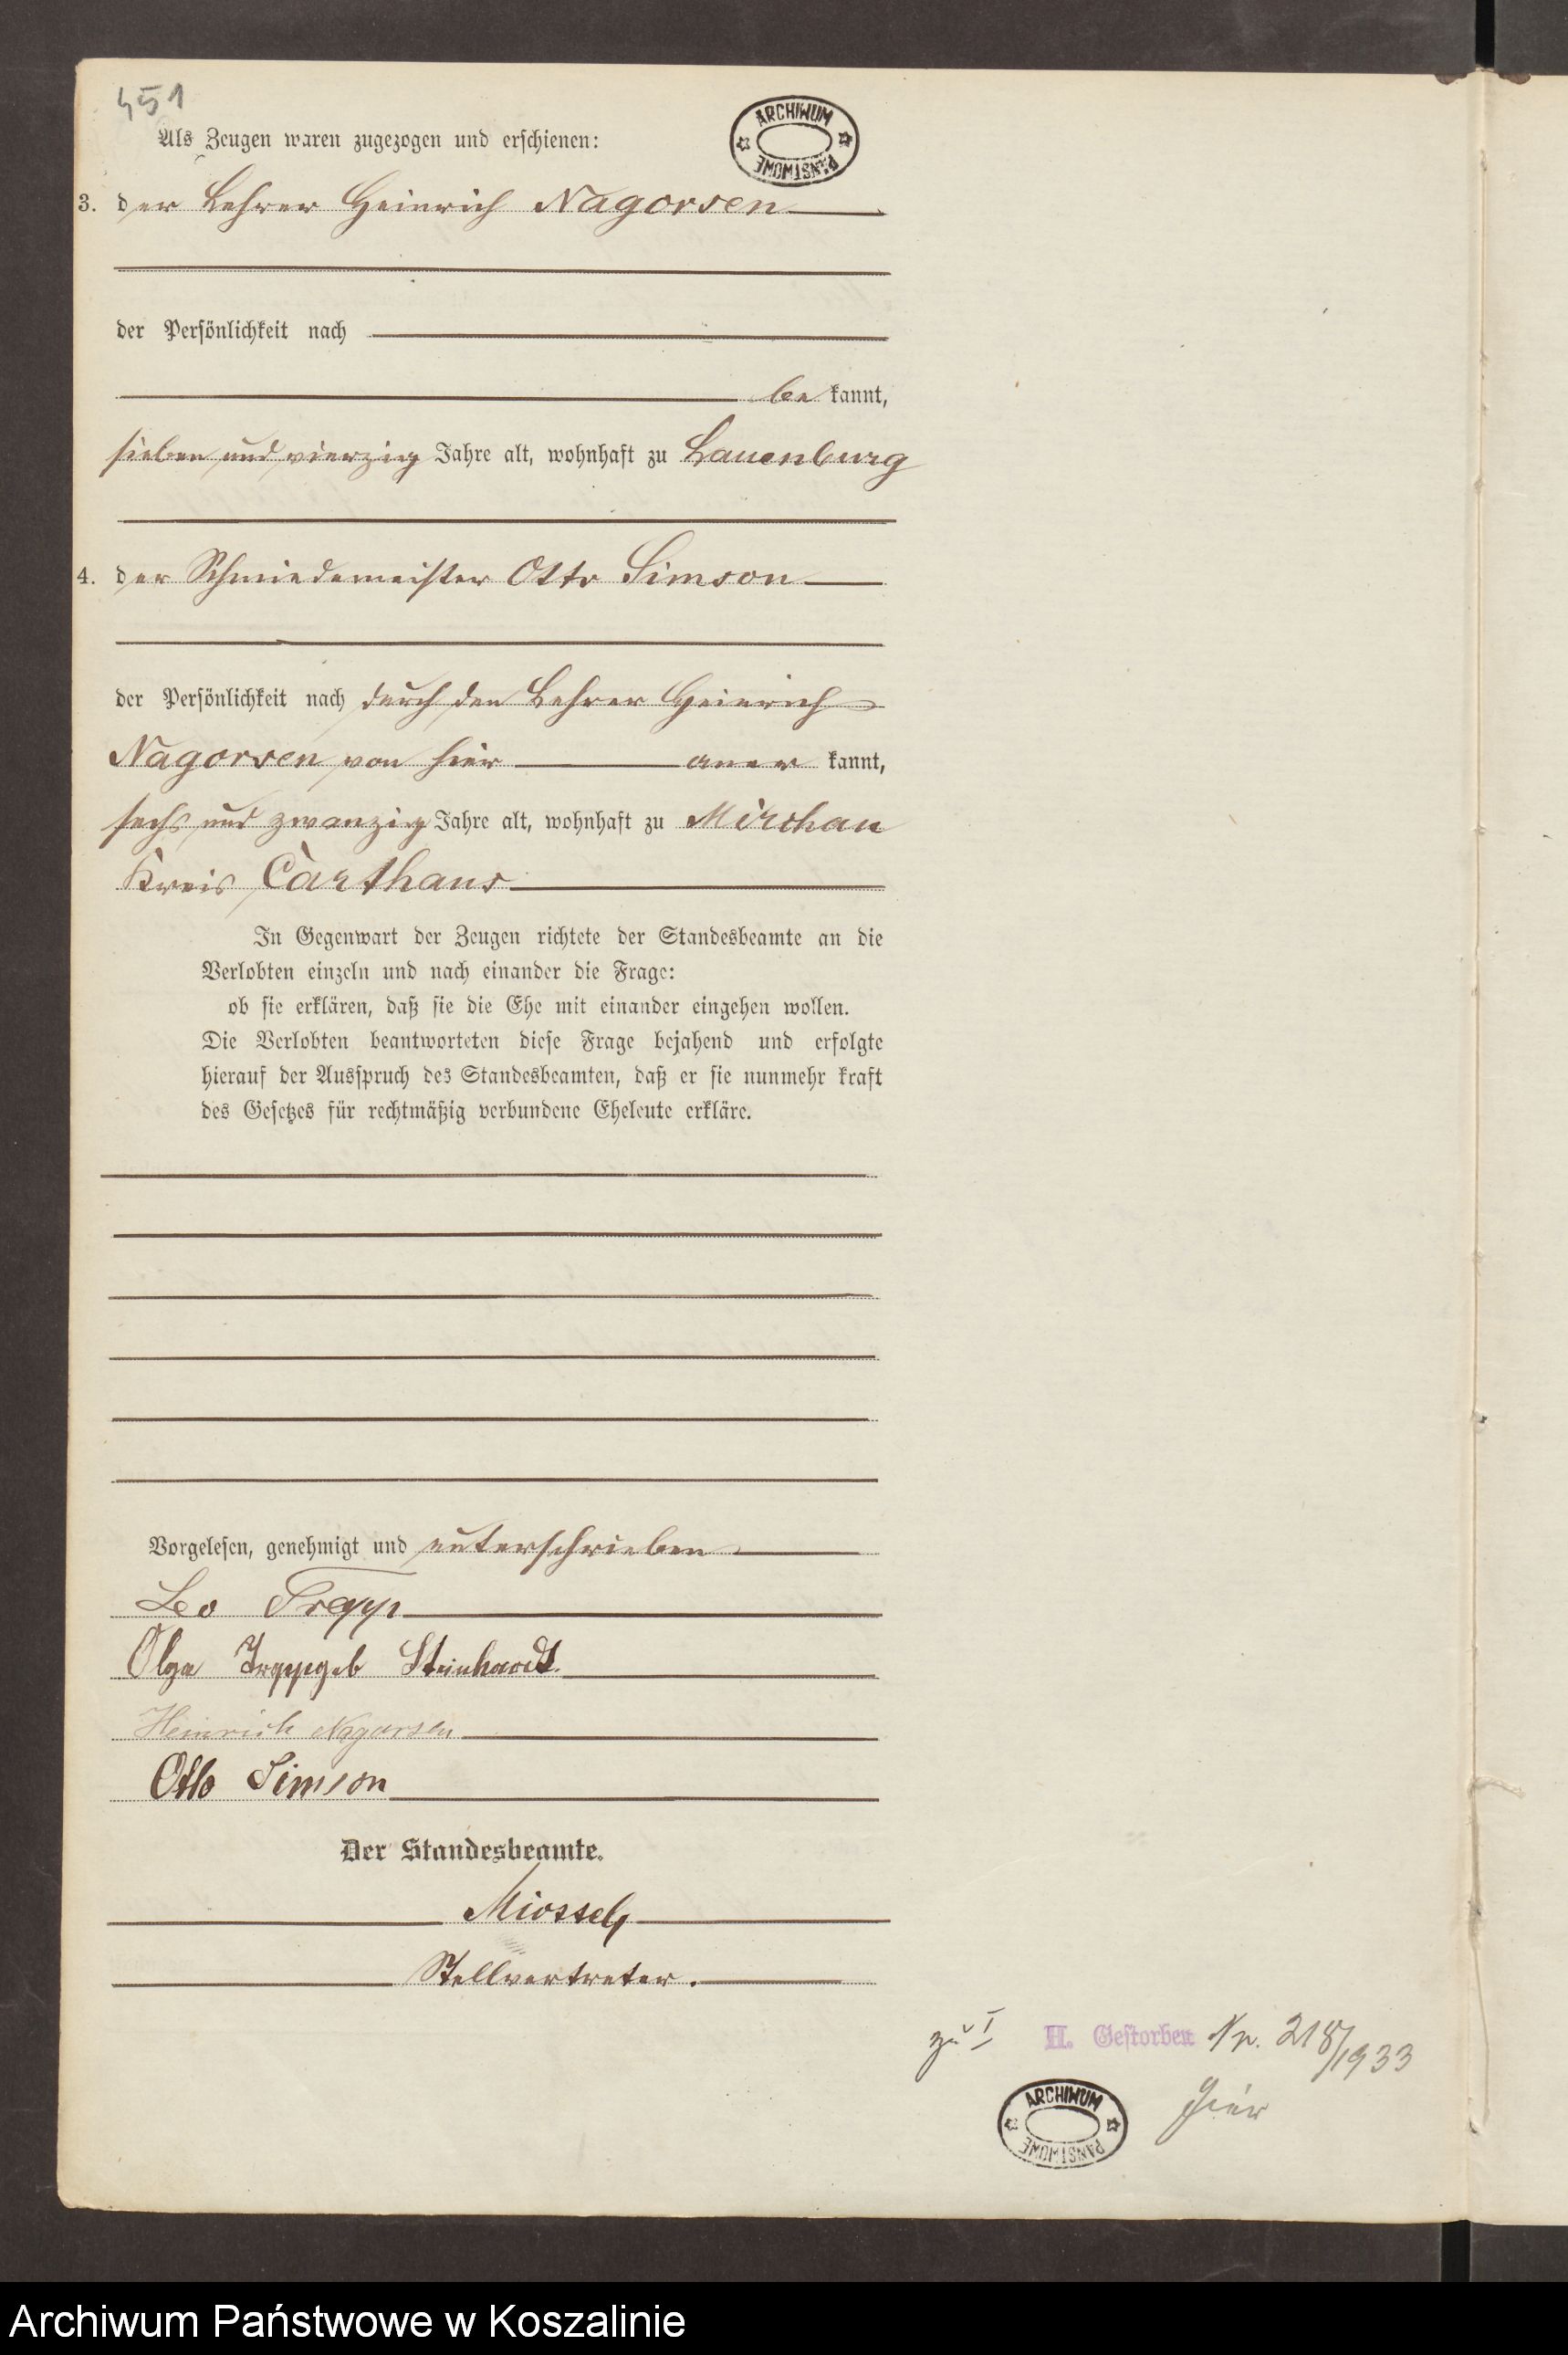 451
Als Zeugen waren zugezogen und erschienen:
ARCHIWUM PAŃSTWOWE
3. der Lehrer Heinrich Nagorsen
der Persönlichkeit nach
be kannt,
sieben und vierzig Jahre alt, wohnhaft zu Lauenburg
4. der Schmiedemeister Otto Simson
der Persönlichkeit nach durch den Lehrer Heinrich
Nagorsen von hier aner kannt,
sechs und zwanzig Jahre alt, wohnhaft zu Mirchau
Kreis Carthaus
In Gegenwart der Zeugen richtete der Standesbeamte an die
Verlobten einzeln und nach einander die Frage:
ob sie erklären, daß sie die Ehe mit einander eingehen wollen.
Die Verlobten beantworteten diese Frage bejahend und erfolgte
hierauf der Ausspruch des Standesbeamten, daß er sie nunmehr kraft
des Gesetzes für rechtmäßig verbundene Eheleute erkläre.
Vorgelesen, genehmigt und unterschrieben
Leo Trapp
Olga Trapp geb Steinhardt.
Heinrich Nagorsen
Otto Simson
Der Standesbeamte.
Stellvertreter.
zu I H. Gestorben Nr. 218/1933
hier
ARCHIWUM PAŃSTWOWE
Archiwum Państwowe w Koszalinie